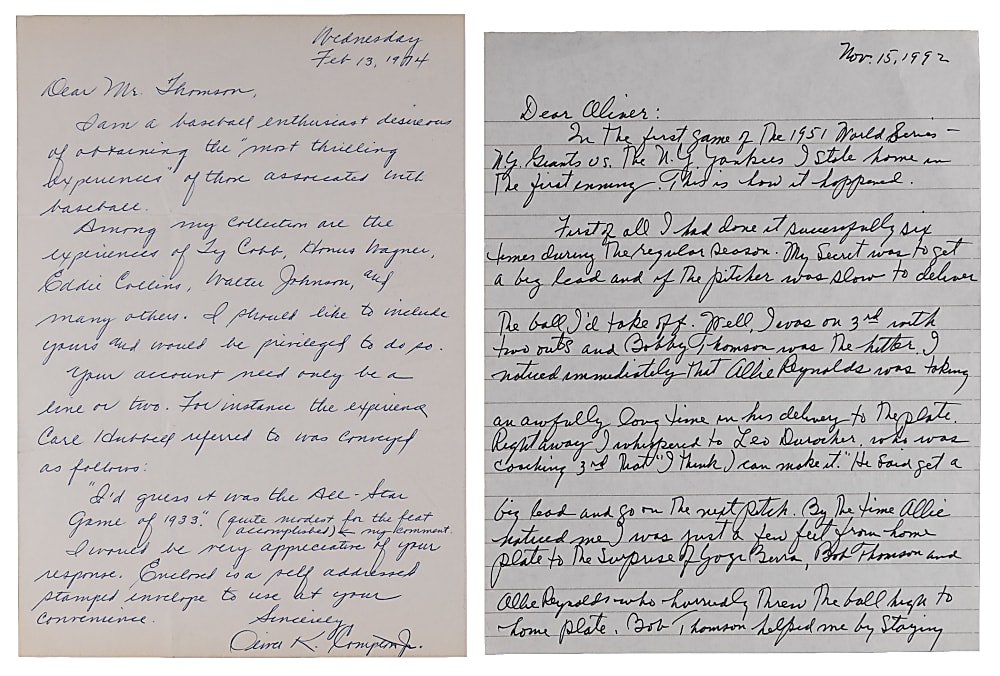 Wednesday
Feb 13, 1974
Dear Mr. Thomson,
I am a baseball enthusiast desireous
of obtaining the "most thrilling
experiences" of those associated with
baseball.
Among my collection are the
experiences of Ty Cobb, Honus Wagner,
Eddie Collins, Walter Johnson, and
many others. I should like to include
yours and would be privileged to do so.
Your account need only be a
line or two. For instance the experience
Carl Hubbell referred to was conveyed
as follows:
"I'd guess it was the All-Star
Game of 1933." (quite modest for the feat
accomplished) ← my comment.
I would be very appreciative of your
response. Enclosed is a self addressed
stamped envelope to use at your
convenience.
Sincerely,
K. Compton Jr.
Nov. 15, 1992
Dear Oliver:
In The first game of The 1951 World Series –
N.Y. Giants vs. The N.Y. Yankees I stole home in
The first inning. This is how it happened.
First of all I had done it successfully six
times during The regular season. My Secret was to get
a big lead and if The pitcher was slow to deliver
The ball, I'd take off. Well, I was on 3rd with
two outs and Bobby Thomson was The hitter. I
noticed immediately That Allie Reynolds was taking
an awfully long time in his delivery to The plate.
Right away I whispered to Leo Durocher, who was
coaching 3rd That "I Think I can make it." He said get a
big lead and go on The next pitch. By The time Allie
noticed me I was just a few feet from home
plate to The Surprise of Yogi Berra, Bob Thomson and
Allie Reynolds who hurriedly Threw The ball high to
home plate. Bob Thomson helped me by Staying